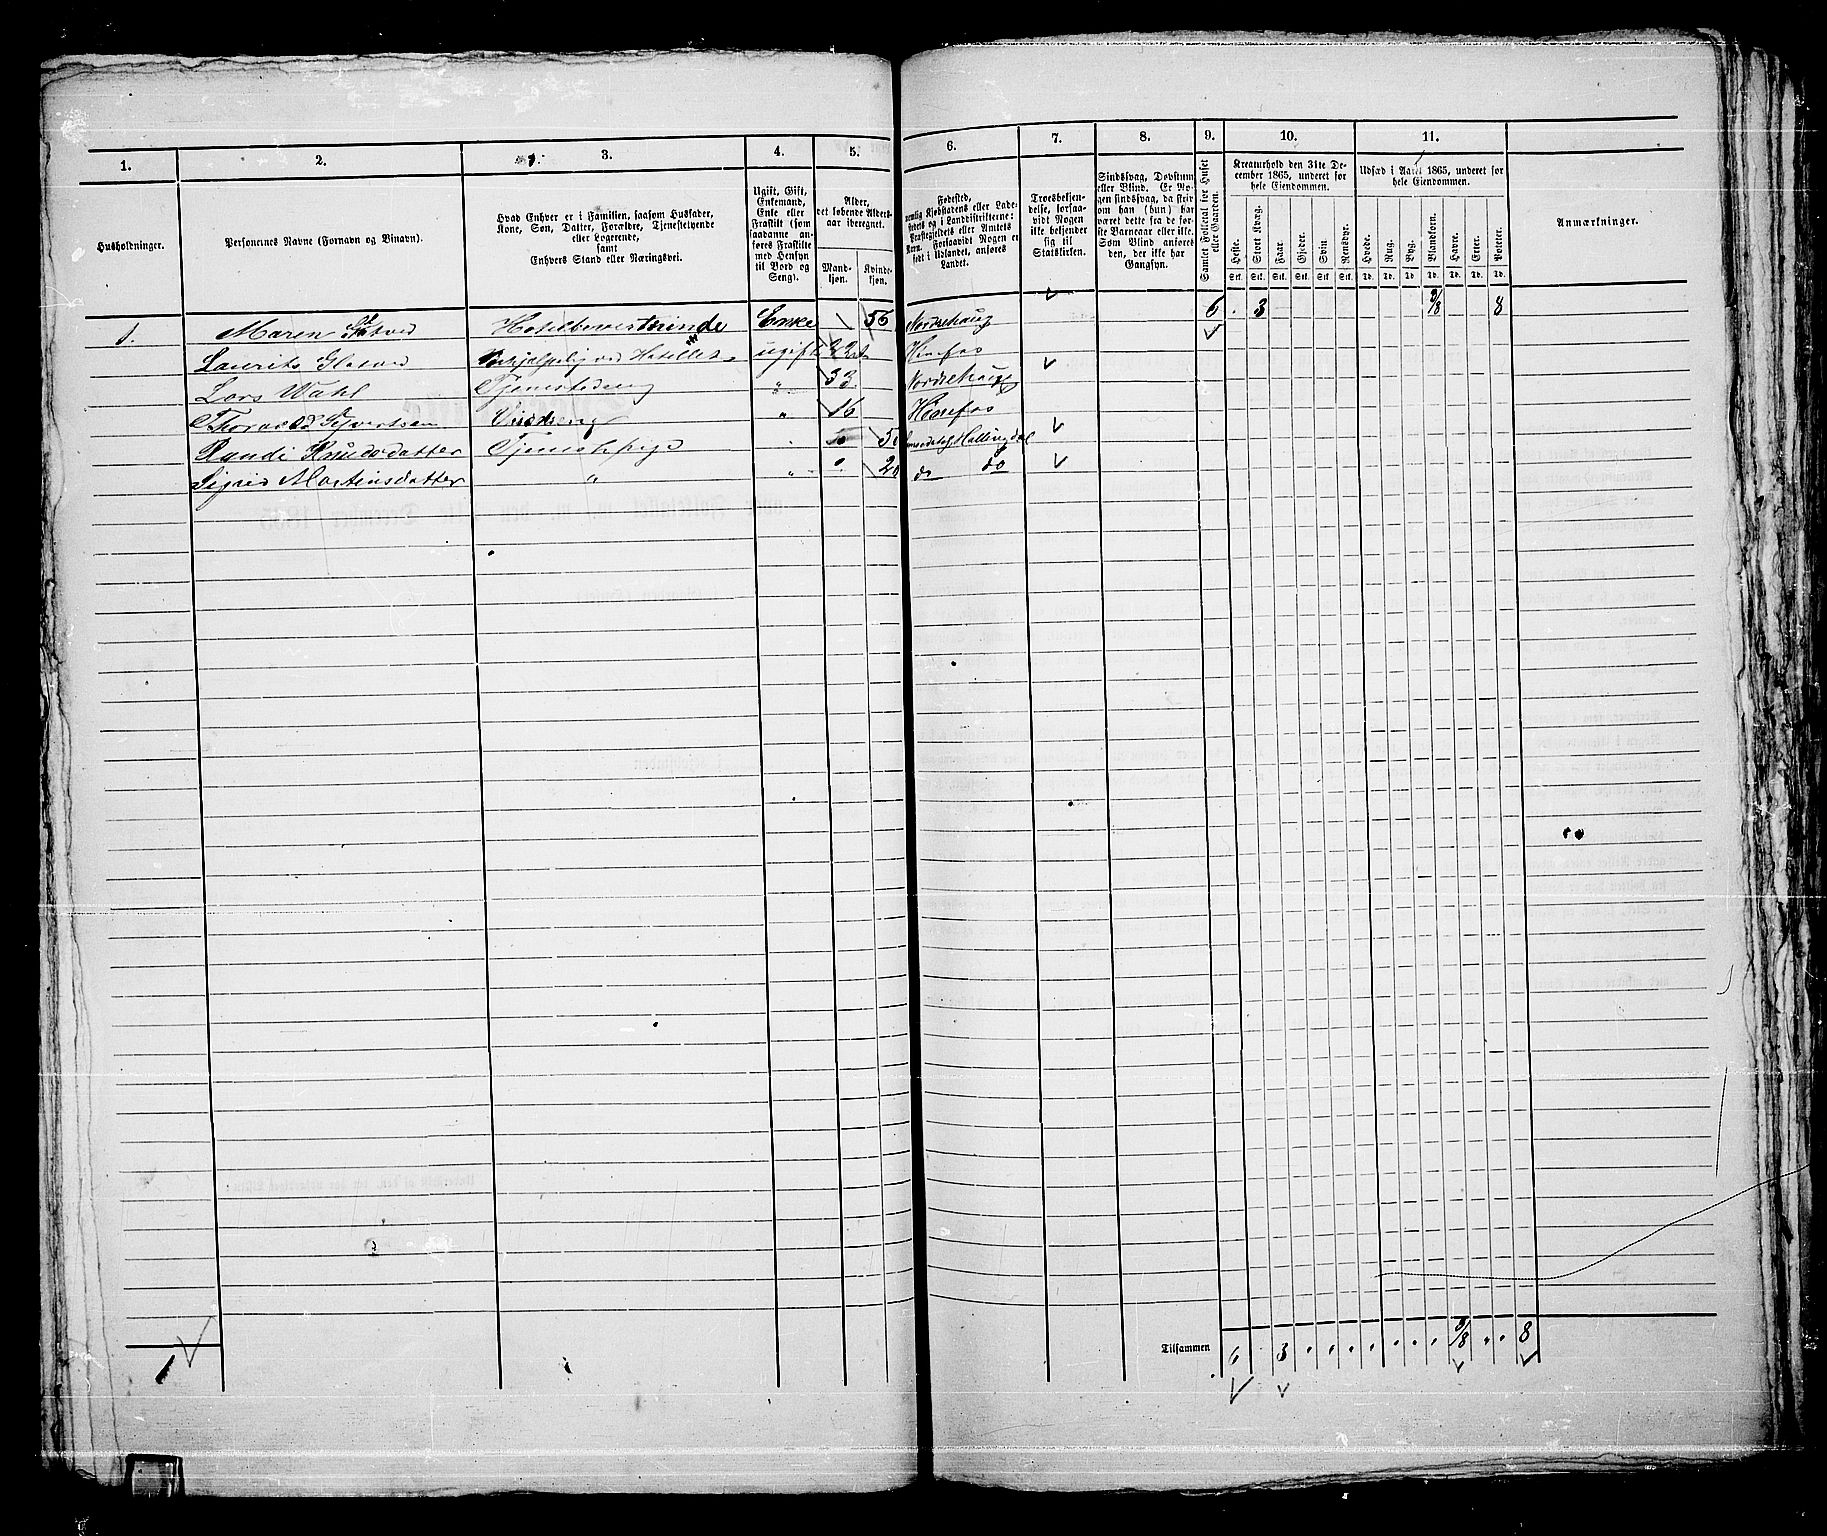 1. 2. 3. 4. 5. 6. 7. 8. 9. 10. 11.
Husholdninger.
Personernes Navne (Fornavn og Binavn).
Hvad Enhver er i Familien, saasom Husfader,
Kone, Søn, Datter, Forældre, Tjenestetyende
eller Logerende,
samt
Enhvers Stand eller Næringsvei.
Ugift, Gift,
Enkemand,
Enke eller
Fraskilt (som
saadanne an-
føres Fraskilte
med Hensyn
til Bord og
Seng).
Alder,
det løbende Alders-
aar iberegnet.
Mand-
kjøn.
Kvinde-
kjøn.
Fødested,
Troesbekjen-
delse, forsaa-
vidt Nogen
ikke bekjender
sig til
Statskirken.
Sindssvag, Døvstum
eller Blind. Er No-
gen sindssvag, da skriv
om han (hun) har
været dette fra de før-
ste Barneaar eller ikke.
Som Blind anføres
den, der ikke har
Gangsyn.
Samlet Folketal for Huset
eller Gaarden.
Kreaturhold den 31te De-
cember 1865, underet for
hele Eiendommen.
Heste. Stort Kvæg. Faar. Gjeder. Svin. Rensdyr.
Stk. Stk. Stk. Stk. Stk. Stk.
Udsæd i Aaret 1865, underet for
hele Eiendommen.
Hvede. Rug. Byg. Blandkorn. Havre. Erter. Poteter.
Td. Td. Td. Td. Td. Td. Td.
Anmærkninger.
1. Maren Hotelbeværterinde Enke 56 Norderhaug 6 3 3/8 8
Laurits Behjælpelig ved Hotellet ugift 22 Hønefos
Lars Wahl Tjenestedreng " 33 Norderhaug
Thorvald Syvertsen " 16 Hønefos
Randi Knudsdatter Tjenestepige 50 Hallingdal
Sigrid Martinsdatter " " 20 do do
1 Tilsammen 6 3 " " " " " " " 3/8 " " 8